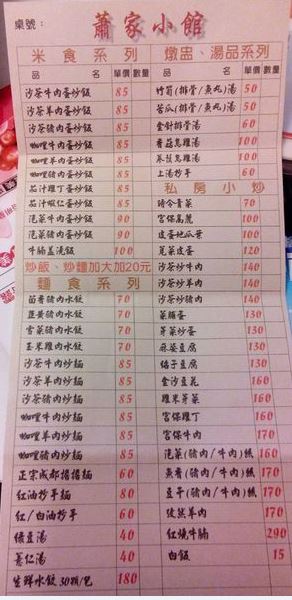 桌號：
蕭家小館
米食系列
品名 單價 數量
沙茶牛肉蛋炒飯 85
沙茶羊肉蛋炒飯 85
沙茶豬肉蛋炒飯 85
咖哩牛肉蛋炒飯 85
咖哩羊肉蛋炒飯 85
咖哩豬肉蛋炒飯 85
茄汁雞丁蛋炒飯 85
茄汁蝦仁蛋炒飯 85
泡菜牛肉蛋炒飯 90
泡菜豬肉蛋炒飯 90
牛腩蓋澆飯 100
炒飯、炒麵加大加20元
麵食系列
茴香豬肉水餃 70
韭黃豬肉水餃 70
雪菜豬肉水餃 70
玉米雞肉水餃 70
沙茶牛肉炒麵 85
沙茶羊肉炒麵 85
沙茶豬肉炒麵 85
咖哩牛肉炒麵 85
咖哩羊肉炒麵 85
咖哩豬肉炒麵 85
正宗成都擔擔麵 60
紅油抄手麵 80
紅/白油抄手 60
綠豆湯 40
薏仁湯 40
生鮮水餃30顆/包 180
燉盅、湯品系列
品名 單價 數量
竹筍(排骨/魚丸)湯 50
苦瓜(排骨/魚丸)湯 50
金針排骨湯 60
香菇烏雞湯 100
烏雞湯 100
上湯抄手 60
私房小炒
時令青菜 70
宮保高麗 100
皮蛋地瓜葉 100
莧菜皮蛋 120
沙茶炒牛肉 140
沙茶炒羊肉 140
沙茶炒豬肉 140
菜脯蛋 130
芽菜炒蛋 130
麻婆豆腐 130
豆腐 130
金沙豆花 160
雞米芽菜 160
宮保雞丁 160
宮保牛肉 170
泡菜(豬肉/牛肉)絲 160
魚香(豬肉/牛肉)絲 170
豆干(豬肉/牛肉)絲 170
孜然羊肉 170
紅燒牛腩 290
白飯 15